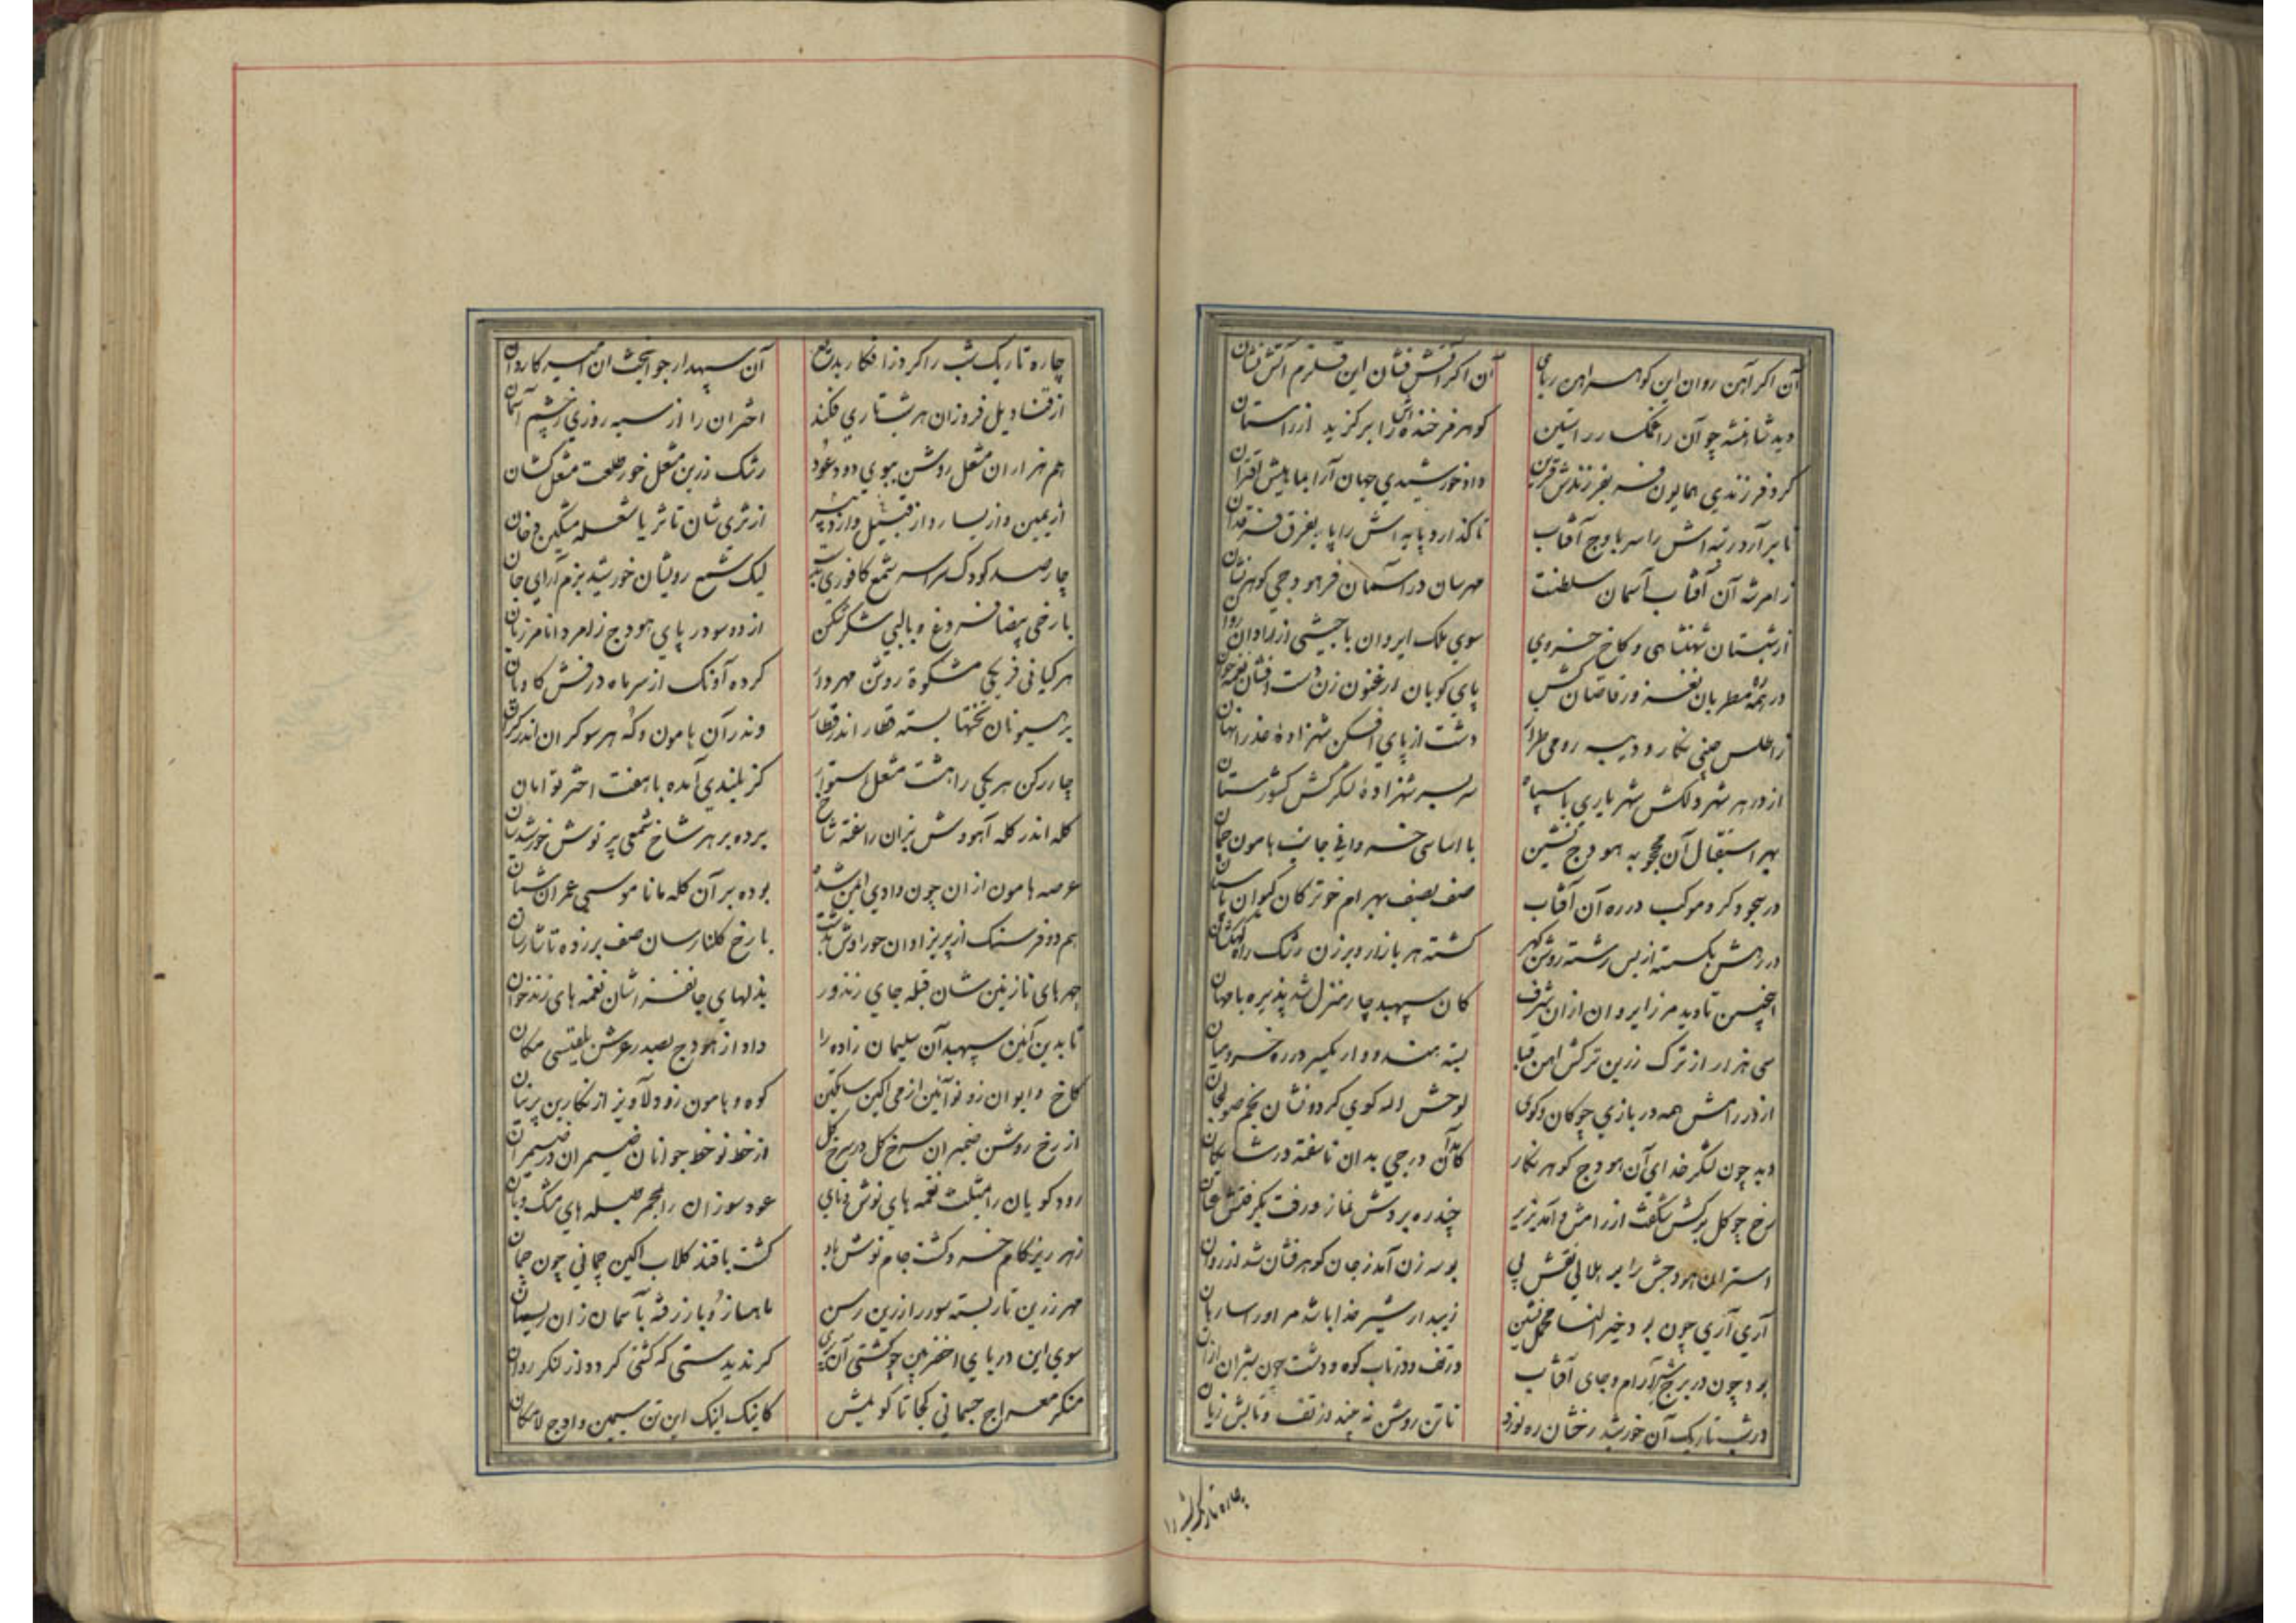 آن اکر آهن روان این کوهر آهن ربای آن اکر آتش فشان این قلزم آتش نشان
دید شاهنشه چو آن را غمکسار راستین کوهر فرخنده زاتش را برکزید از راستان
کرد فرزندی همایون فر بفرزندش قرین داد خورشیدی جهان آرا بماهیش اقتران
تا برآرد رتبه اش را سر باوج آفتاب تا کذارد پایه اش را پا بفرق فرقدان
زامر شه آن آفتاب آسمان سلطنت مهرسان در آسمان فر هودجی کوهرنشان
از شبستان شهنشاهی و کاخ خسروی سوی ملک ایروان با جیشی از رادان روان
در همه ره مطربان نغز و رقاصان کش پای کوبان ارغنون زن دست افشان نغمه خوان
زاطلس چینی نکار و دیبه رومی طراز دشت از پای افکن شهزاده عذرا نهان
از در هر شهر دلکش شهریاری با سپاه سر بسر شهزاده لشکرکش کشورستان
بهر استقبال آن محجوبه هودج نشین با اساسی خسروانی جانب هامون چمان
در سجود کرد موکب در ره آن آفتاب صف بصف بهرام خو ترکان کیوان پاسبان
در رهش بکسته از بس رشته روشن کهر کشته هر بازار و برزن رشک راه کهکشان
اینچنین تا دید مرز ایروان از ان شرف کان سپهبد چار منزل شد پذیره با مهان
سی هزار از ترک زرین ترکش آهن قبا بسته هندووار یکسر در ره خسرو میان
از در رامش همه در بازی چوکان و کوی لوحش الله کوی کردونشان بخم صولجان
دید چون لشکر خدای آن هودج کوهر نکار کامد آن درجی بدان ناسفته در شایکان
رخ چو کل برکش شکفت از رامش و آمد بزیر چند ره بردش نماز و رفت بکرفتش عنان
استران هودجش را بر هلالی نقش پی بوسه زن آمد ز جان کوهر فشان شد از روان
آری آری چون بود خیر النسا محمل نشین زیبد ار شیر خدا باشد مر او را ساربان
بود چون در برج شیر آرام و جای آفتاب در تف و در تاب کوه و دشت چون شیران ازان
در شب تاریک آن خورشید رخشان ره نورد تا تن روشن نه بیند از تف و تابش زیان
چاره تاریک شب را
چاره تاریک شب را کرد ز افکار بدیع آن سپهدار جوانبخت ان امیر کاروان
از قنادیل فروزان هر شب تاری فکند اختران را از سیه روزی ز چشم آسمان
هم هزاران مشعل روشن ببوی دود عود رشک زرین مشعل خور طلعت مشعل کشان
از یمین و از یسار و از قبیل و از دبیر از ثری شان تا ثریا شعله مشکین دخان
چارصد کودک سراسر شمع کافوری بدست لیک شمع رویشان خورشید بزم آرای جان
با رخی بیضا فروغ و با لبی شکرشکن از دو سو در پای هودج زامر دانا مرزبان
هر کیانی فر یکی مشکوة روشن مهروار کرده آونک از سر ماه درفش کاویان
بر هیونان تختها بسته قطار اندر قطار وندر آن هامون و که هر سو کران اندر کران
چار رکن هر یکی را هشت مشعل استوار کز بلندی آمده با هفت اختر توامان
کله اندر کله آهووش بزان راسفته شاخ برده بر هر شاخ شمعی پرتوش خورشیدسان
عرصه هامون از ان چون وادی ایمن شده بوده بر آن کله مانا موسی عمران شبان
هم دو فرسنک از پریزادان حوراوش بدشت با رخ کلنارسان صف برزده تا شارسان
چهرهای نازنین شان قبله جای زند ور بذلهای جانفزاشان نغمه های زندخوان
تا بدین آئین سپهبد آن سلیمان زاده را داد از هودج بصدر عرش بلقیسی مکان
کاخ و ایوان زو نوآئین از می اکین ساتکین کوه و هامون زو دلاویز از نکارین پرنیان
از رخ روشن ضمیران سرخ کل در سرخ کل از خط نوخط جوانان ضیمران در ضیمران
رود کویان را مثلث نغمه های نوش و نای عود سوزان را بمجمر صیله های مشک و بان
زهر ریز کام خسرو کشت جام نوش باد کشت با قند کلاب اکین چمانی چون چمان
مهر زرین تار بسته سور را زرین رسن ماهساز و باز رفته بآسمان زان ریسمان
سوی این دریای اخضر بین چو کشتی آن پری کر ندیدستی که کشتی کرد و از لنکر روان
منکر معراج جسمانی کجا تا کویمش کاینک اینک این تن سیمین و اوج لامکان